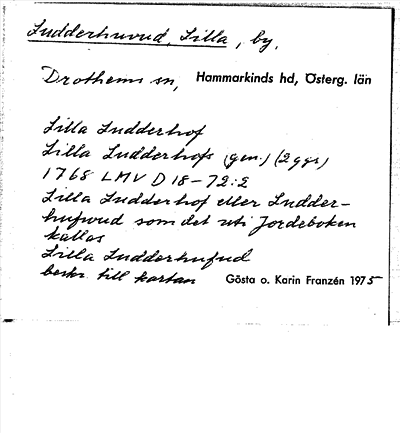 Ludderhuvud, Lilla, by,
Drothems sn, Hammarkinds hd, Österg. län
Lilla Ludderhof
Lilla Ludderhofs (gen.) (2 ggr)
1768 LMV D 18-72:2
Lilla Ludderhof eller Ludder-
hufwud som det uti Jordeboken
kallas
Lilla Ludderhufud
beskr. till kartan Gösta o. Karin Franzén 1975